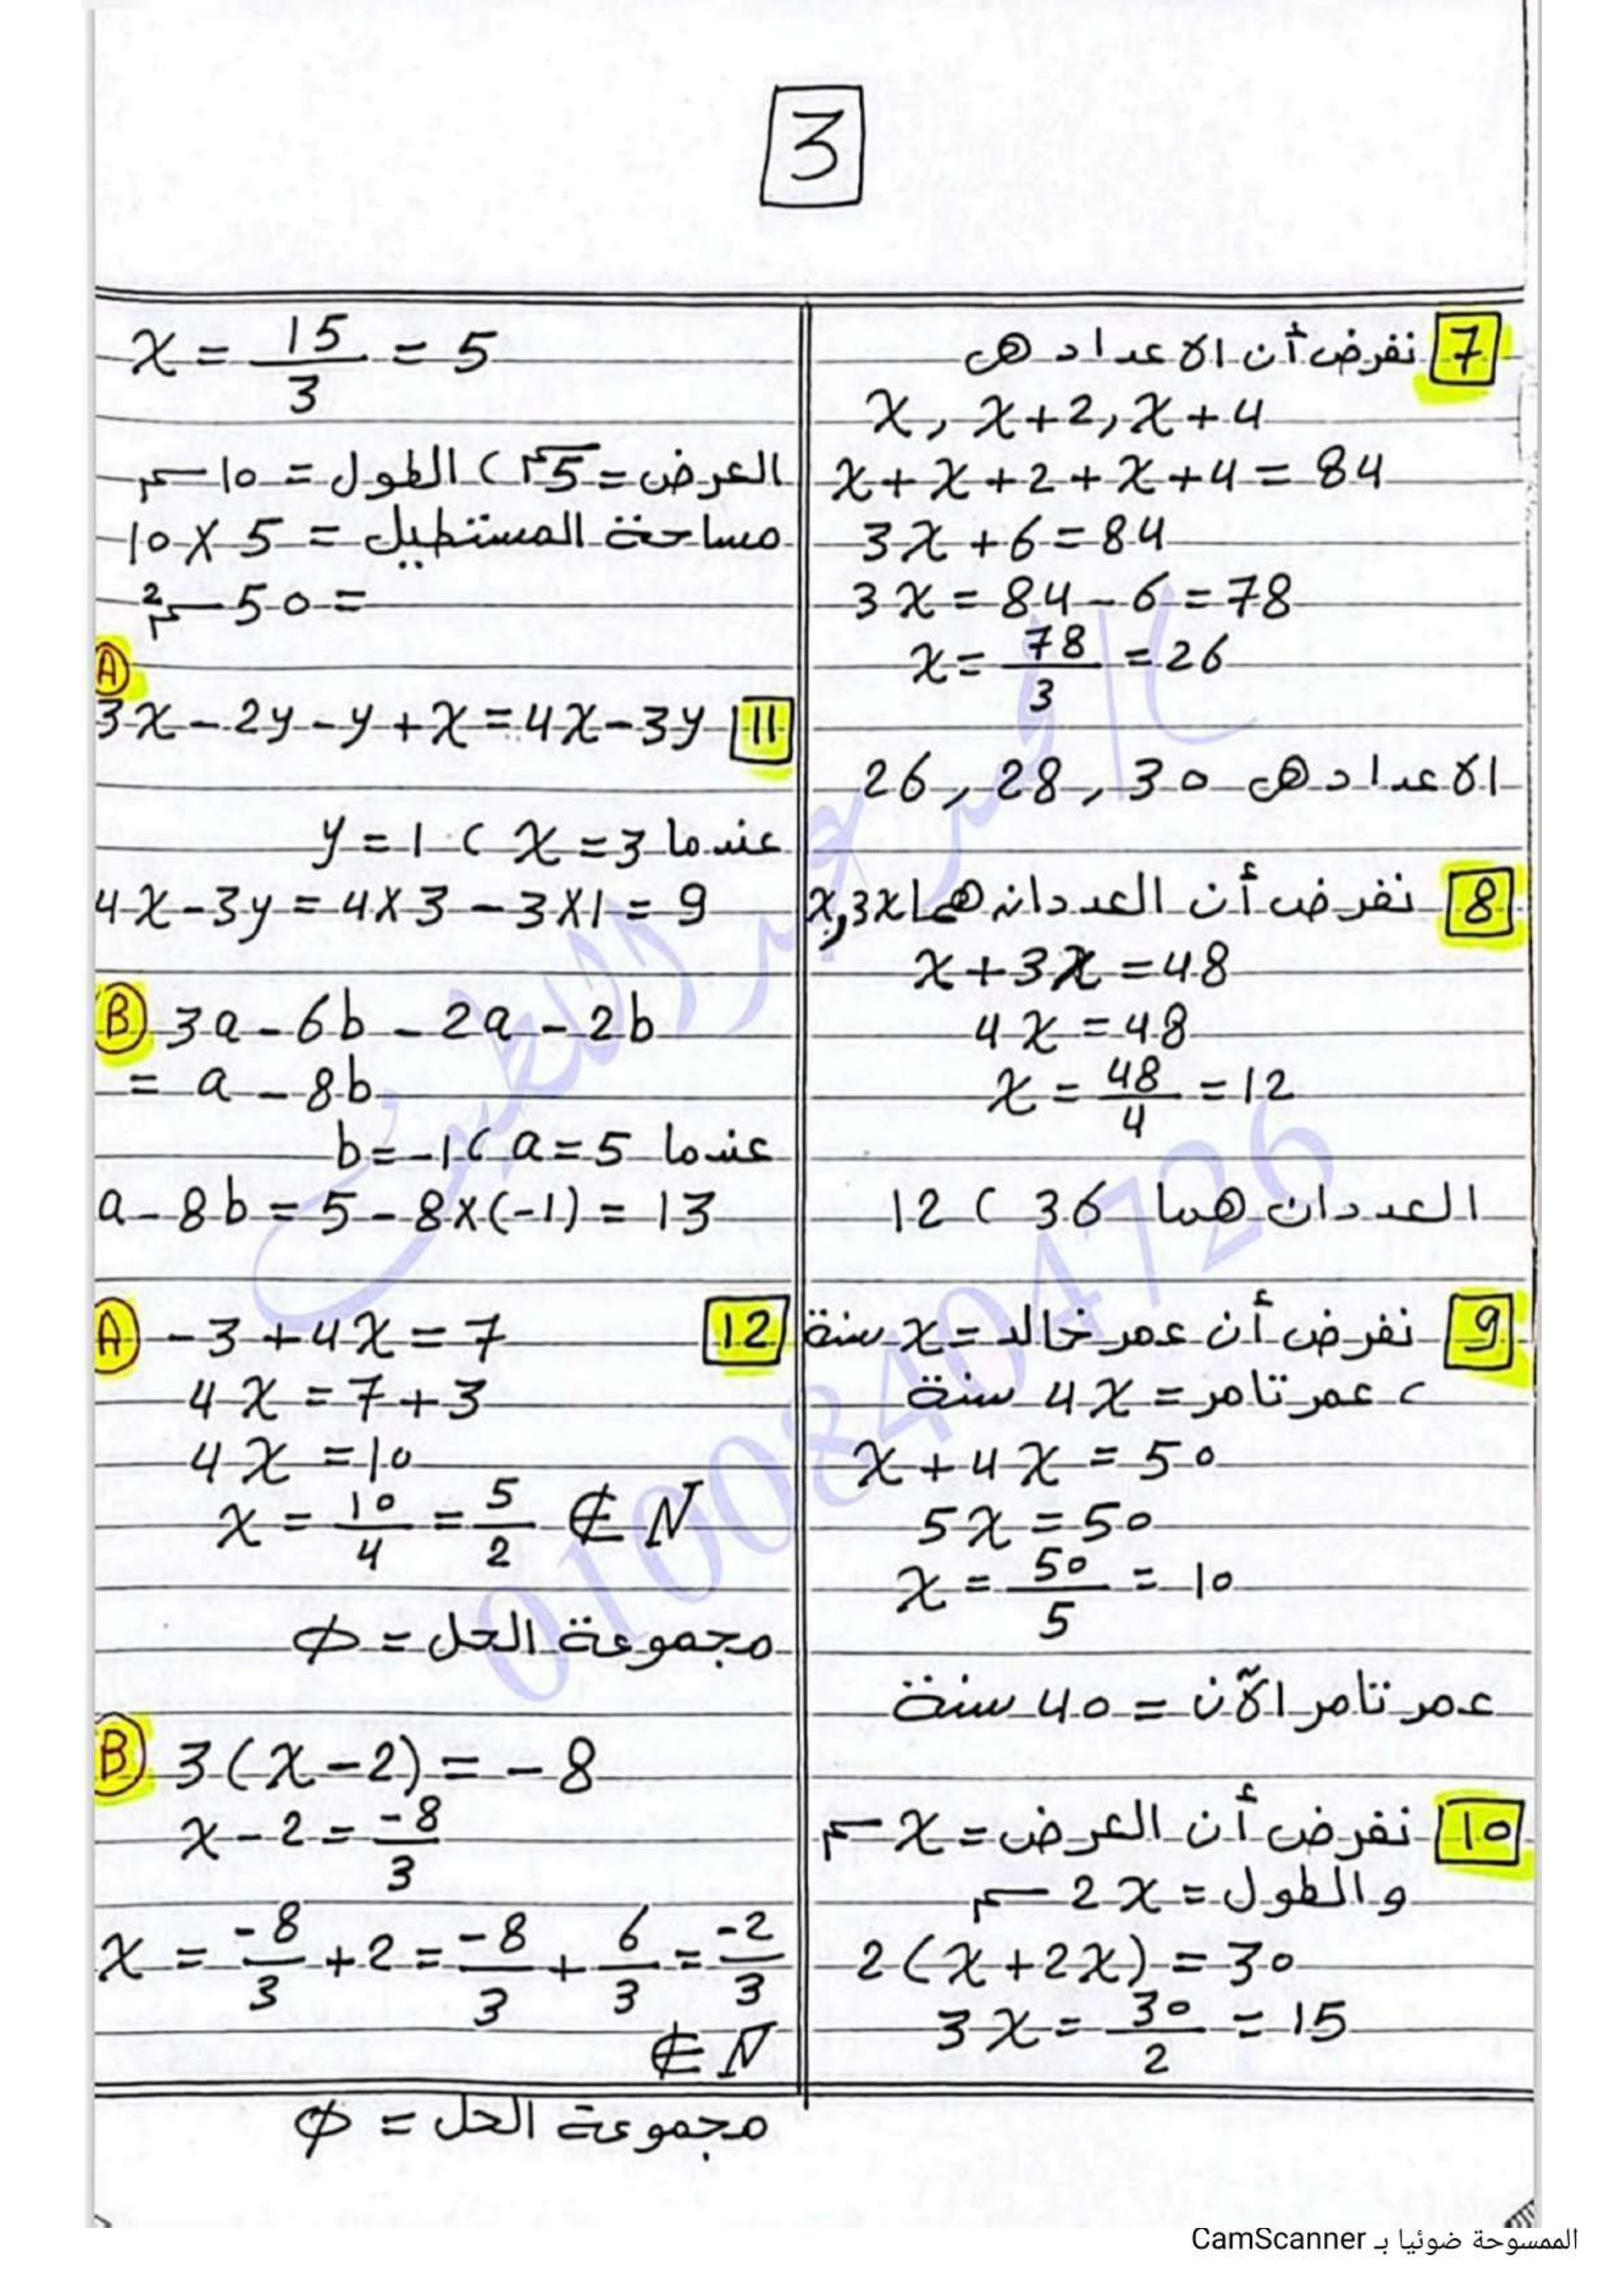 3
7 نفرض أن الاعداد هى
x, x+2, x+4
x+x+2+x+4=84
3x+6=84
3x=84-6=78
x=78/3=26
الاعداد هى 26, 28, 30
8 نفرض أن العددان هما x, 3x
x+3x=48
4x=48
x=48/4=12
العددان هما 36 ، 12
9 نفرض أن عمر خالد = x سنة
، عمر تامر = 4x سنة
x+4x=50
5x=50
x=50/5=10
عمر تامر الآن = 40 سنة
10 نفرض أن العرض = x سم
والطول = 2x سم
2(x+2x)=30
3x=30/2=15
x=15/3=5
العرض = 5 سم ، الطول = 10 سم
مساحة المستطيل = 5 × 10
= 50 سم²
11 A
3x-2y-y+x=4x-3y
عندما x=3 ، y=1
4x-3y=4×3-3×1=9
B 3a-6b-2a-2b
= a-8b
عندما a=5 ، b=-1
a-8b=5-8×(-1)=13
12 A -3+4x=7
4x=7+3
4x=10
x=10/4=5/2 ∉ N
مجموعة الحل = ∅
B 3(x-2)=-8
x-2=-8/3
x=-8/3+2=-8/3+6/3=-2/3
∉ N
مجموعة الحل = ∅
01008404726
الممسوحة ضوئيا بـ CamScanner